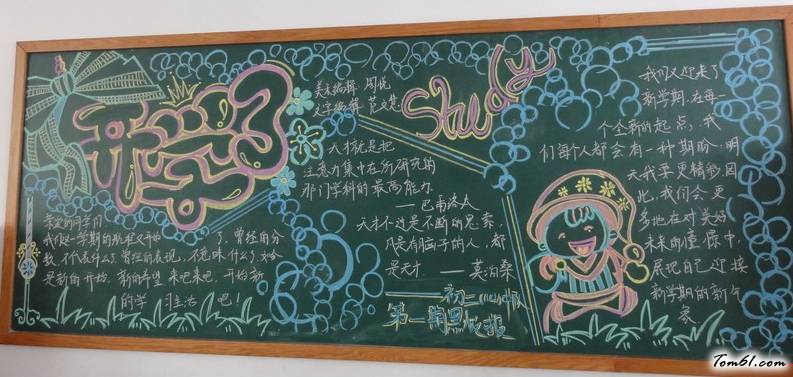 开学了
亲爱的同学们
我们这一学期的航程又开始了，曾经的分
数，不代表什么，曾经的表现，不意味什么，
是新的开始，新的希望 来吧来吧，开始新
的学习生活吧！
美术编辑 周悦
文字编辑 范文楚
study
天才就是把
注意力集中在所研究的
那门学科的最高能力
——巴甫洛夫
天才不过是不断的思索，
凡是有脑子的人，都
是天才——莫泊桑
初二
第一期黑板报
我们又迎来了
新学期，在每一
个全新的起点，我
们每个人都会有一种期盼，明
天我要更精彩，因
此，我们会更
多地在对美好
未来的憧憬中，
展现自己迎接
新学期的新
Tom61.com